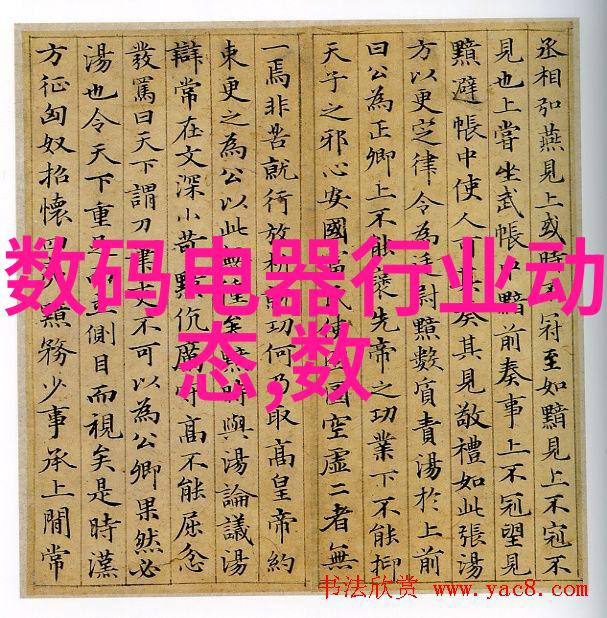 丞相弘燕見上或時冠至如黯見上不冠不
見也上嘗坐武帳中黯前奏事上不冠望見
黯避帳中使人奏其見敬禮如此張湯
方以更定律令為廷尉黯數質責湯於上前
曰公為正卿上不能褒先帝之功業下不能抑
天子之邪心安國富民使空虛二者無
一焉非苦就行放析功何乃取高皇帝約
束更之為公以此無種矣黯時與湯論議湯
辯常在文深小苛黯伉厲守高不能屈忿
發罵曰天下謂刀筆吏不可以為公卿果然必
湯也令天下重足而立側目而視矣是時漢
方征匈奴招懷四夷黯務少事承上間常
数码电器行业动
态,数
书法欣赏 www.yac8.com